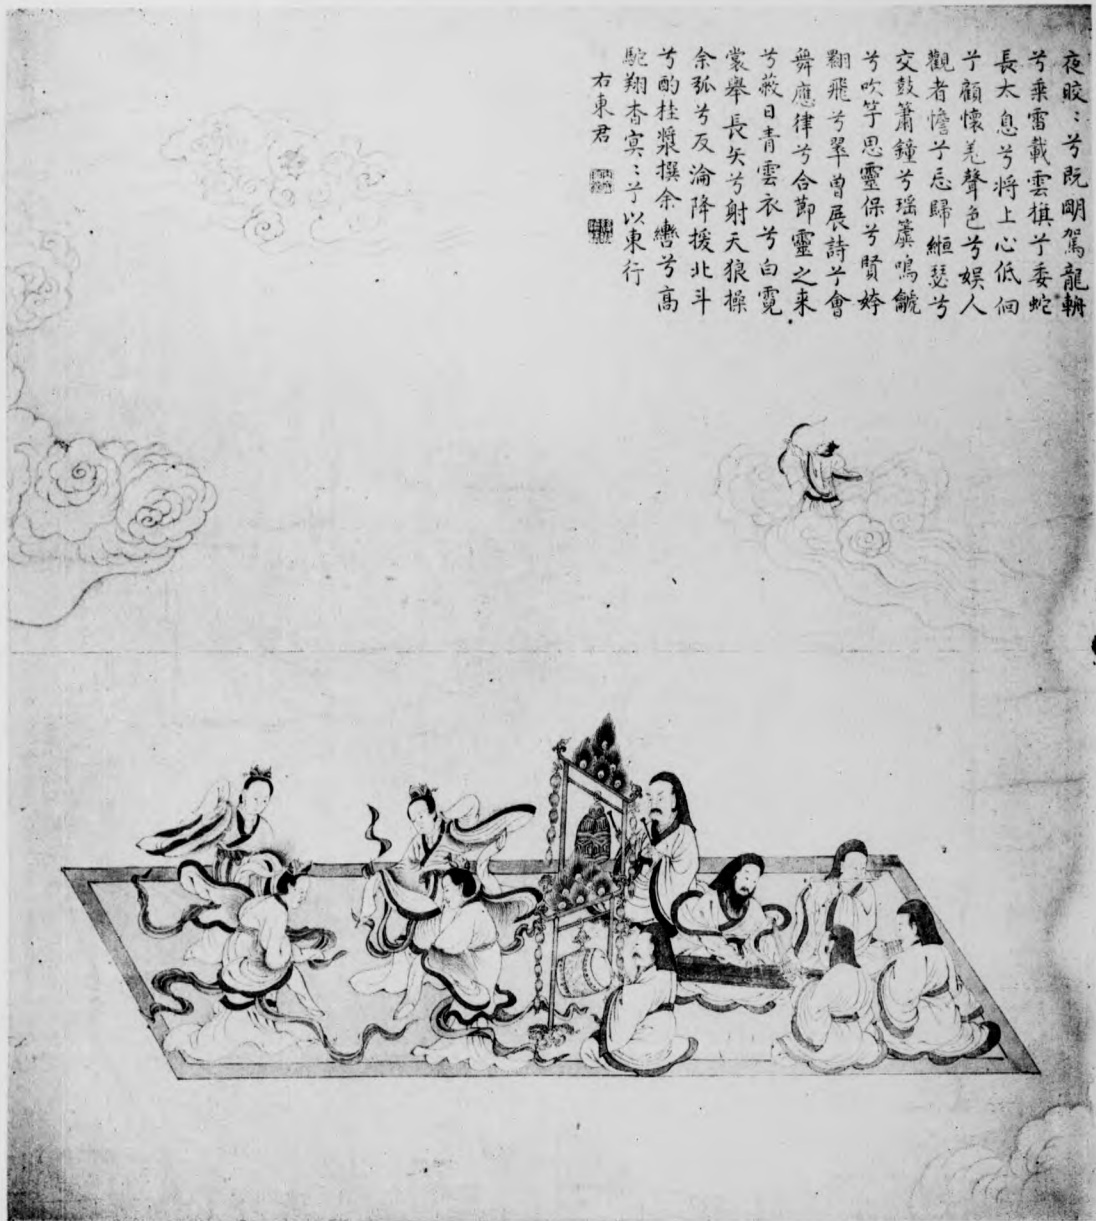 夜晈〻兮既明駕龍輈
兮乘雷載雲旗兮委蛇
長太息兮將上心低佪
兮顧懷羌聲色兮娛人
觀者憺兮忘歸緪瑟兮
交鼓簫鐘兮瑤簴鳴䶵
兮吹竽思靈保兮賢姱
翾飛兮翠曾展詩兮會
舞應律兮合節靈之来
兮蔽日青雲衣兮白霓
裳舉長矢兮射天狼操
余弧兮反淪降援北斗
兮酌桂漿撰余轡兮高
駝翔杳冥〻兮以東行
右東君